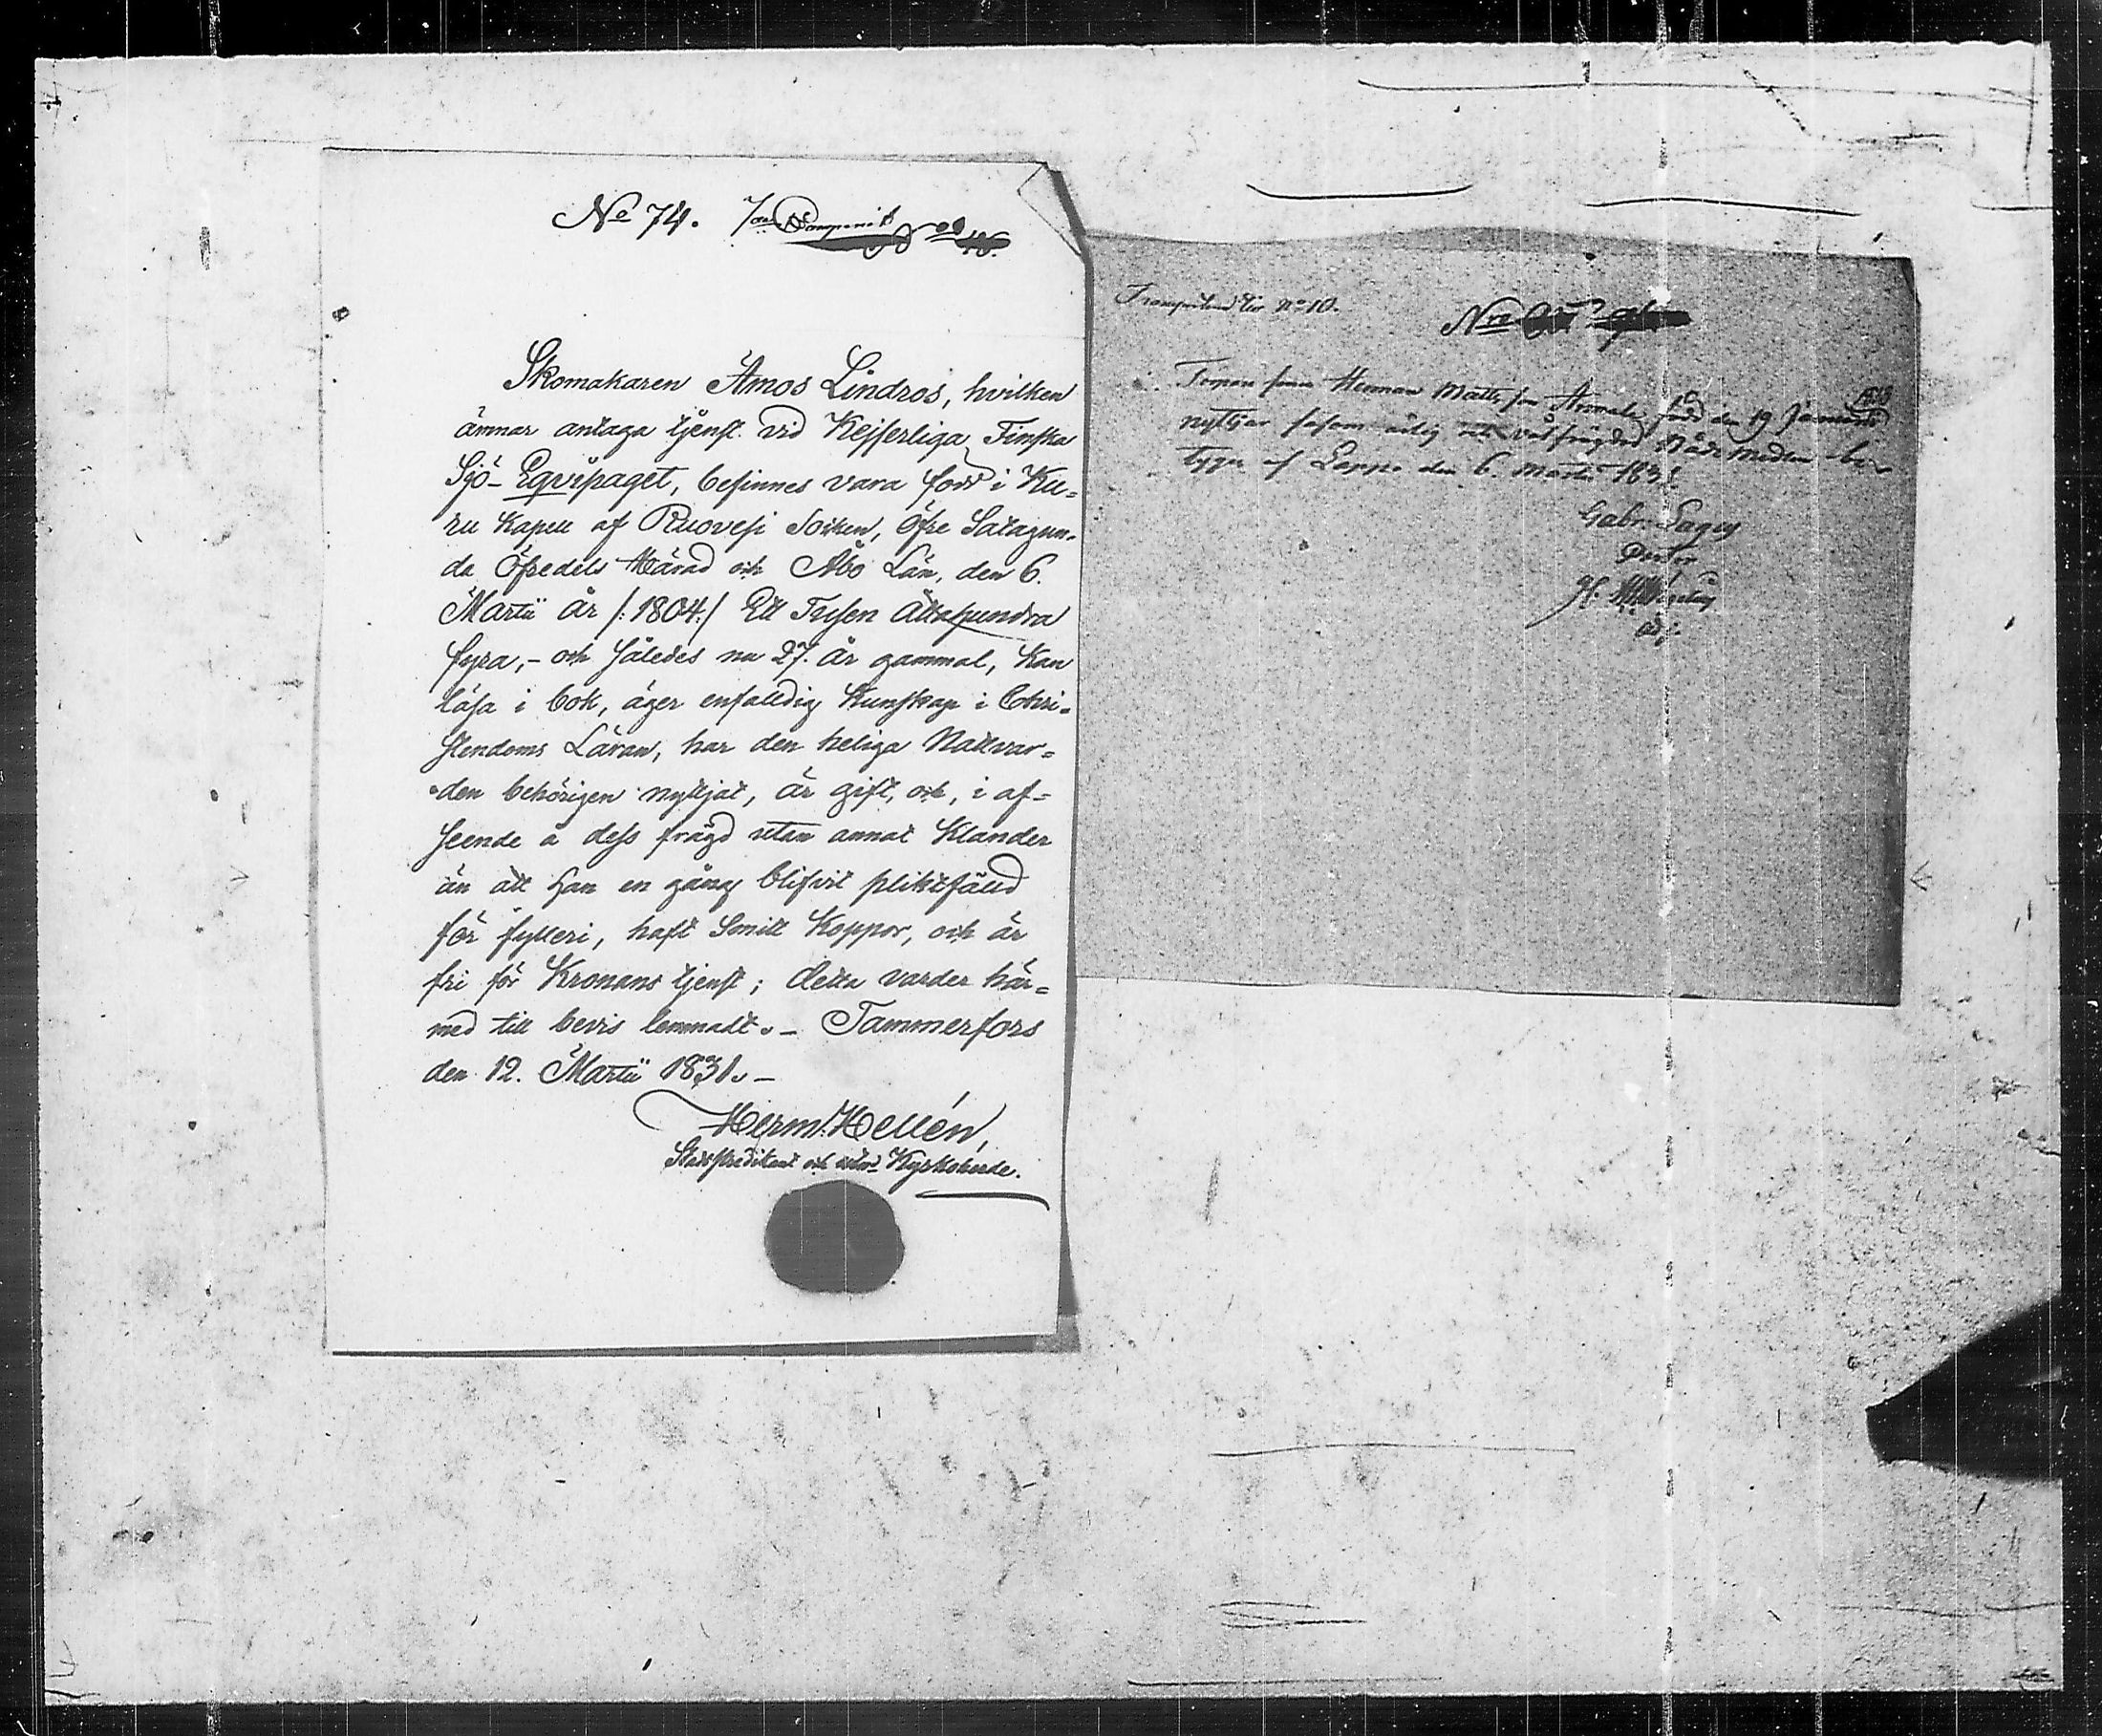 No 74.
Skomakaren Amos Lindros, hvilken
ämnar antaga tjenst vid Kejserliga Finska
Sjö-Eqvipaget, befinnes vara född i Ku=
ru Kapell af Ruovesi Socken, Öfre Satagun=
da Öfredels Härad och Åbo Län, den 6.
Martii år /:1804:/ Ett Tusen Åttahundra
fyra,- och således nu 27. år gammal, kan
läsa i bok, äger enfalldig Kunskap i Chri=
stendoms Läran, har den heliga Nattvar=
den behörigen nyttjat, är gift, och, i af=
seende å dess frägd utan annat Klander
än att han en gång blifvit pliktfälld
för fylleri, haft Smitt Koppor, och är
fri för Kronans tjenst; detta varder här=
med till bevis lemnadt.- Tammerfors
den 12. Martii 1831.-
Herm. Hellén,
Stadspredikant och Kyrkoherde.
Transporterad No 10.
Herman Matts son född den 19 Januarii
nyttjar såsom ärlig och välfrägdad Nådemedlen be-
tygar af Lappo den 6. Martii 1831
Gabr. Lagus
Pastor
H.
Adj.